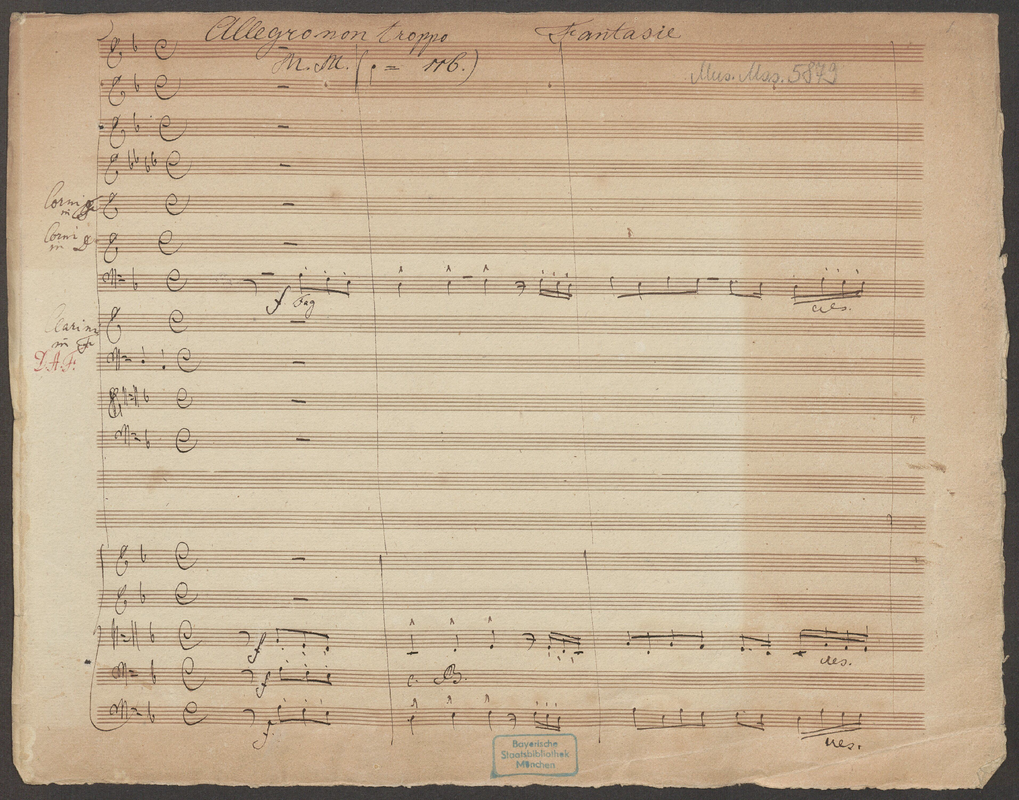 Allegro non troppo Fantasie
M. M. ( = 116.)
Mus. Mss. 5879
Corni
in
Corni
in D
f Fag
cres.
Clarini
in
D. A. F.
f
cres.
f
c. B.
f
cres.
Bayerische
Staatsbibliothek
München